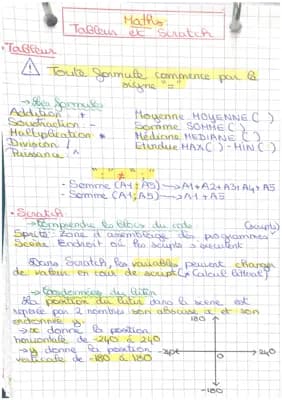 Maths:
Tableur et Scratch
• Tableur
! Toute formule commence par le
signe "="
→ Les formules
Addition : +
Soustraction : -
Multiplication *
Division /
Puissance ^
Moyenne MOYENNE ( )
Somme SOMME ( )
Médiane MEDIANE ( )
Etendue MAX ( ) - MIN ( )
":" ≠ ";"
- Somme (A1:A5) → A1+A2+A3+A4+A5
- Somme (A1;A5) → A1+A5
• Scratch
→ Comprendre les blocs du code
(scripts)
Sprite: Zone d'assemblage des programmes
Scène: Endroit où les scripts s'exécutent
Dans Scratch, les variables peuvent changer
de valeur en cours de script (≠ Calcul littéral)
→ Coordonnées du lutin
La position du lutin dans la scène est
repérée par 2 nombres son abscisse x et son
ordonnée y.
→ x donne la position
horizontale de -240 à 240
→ y donne la position
verticale de -180 à 180
180
-240
0
240
-180